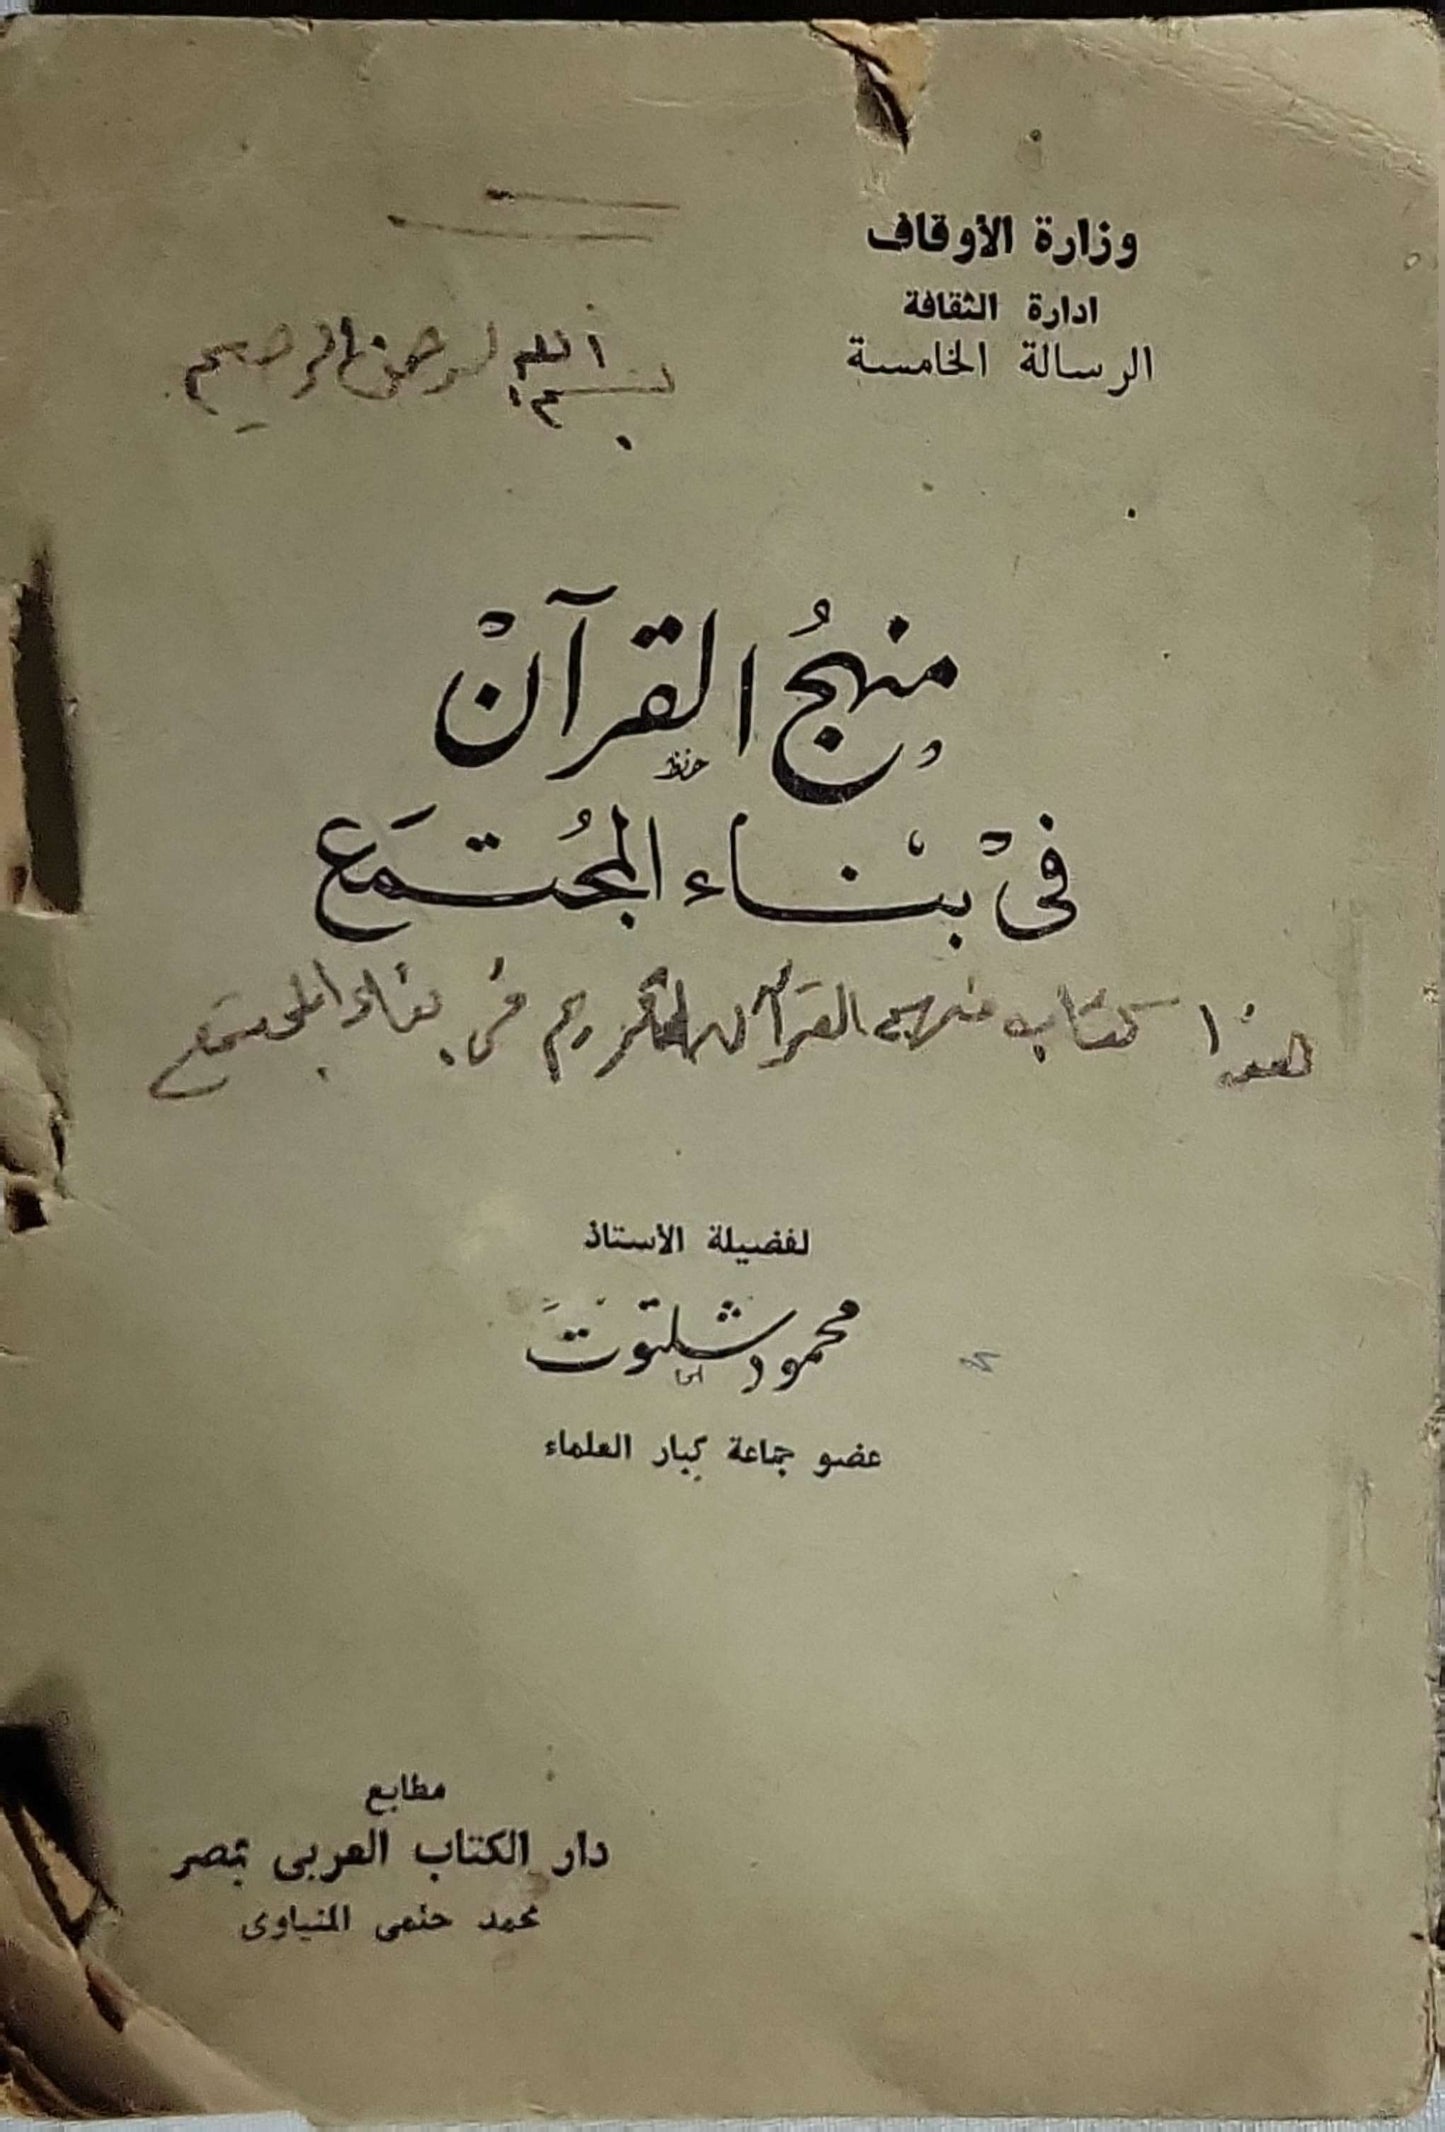 وزارة الأوقاف
ادارة الثقافة
الرسالة الخامسة
بسم الله الرحمن الرحيم
منهجُ القرآنْ
فىْ بنَاء المجُتمَع
هذا كتاب منهج القرآن الكريم في بناء المجتمع
لفضيلة الأستاذ
محمود شلتوتَ
عضو جماعة كبار العلماء
مطابع
دار الكتاب العربى بمصر
محمد حلمى المنياوى